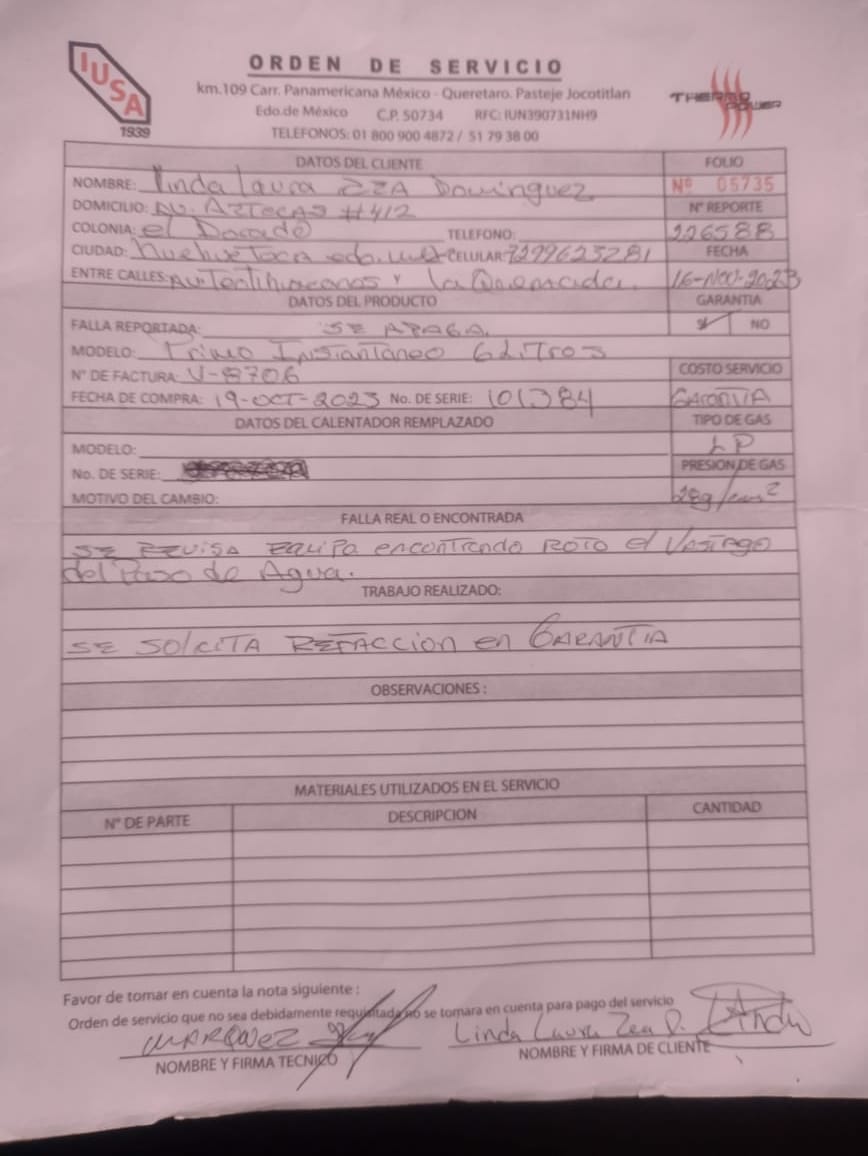 IUSA
1939
ORDEN DE SERVICIO
km.109 Carr. Panamericana México - Queretaro. Pasteje Jocotitlan
Edo.de México C.P. 50734 RFC: IUN390731NH9
TELEFONOS: 01 800 900 4872 / 51 79 38 00
THERMO POWER
DATOS DEL CLIENTE FOLIO
NOMBRE: Linda Laura ZEA Dominguez Nº 05735
DOMICILIO: AV. AZTECAS #412 N° REPORTE
COLONIA: el Dorado TELEFONO: 226588
CIUDAD: Huehuetoca edo. mex CELULAR: 7299623281 FECHA
ENTRE CALLES: AV. Teotihuacanos y la Quemada. 16-NOV-2023
DATOS DEL PRODUCTO GARANTIA
FALLA REPORTADA: SE APAGA. SI NO
MODELO: Primo INSTANTANEO 6 LITROS
N° DE FACTURA: V-8706 COSTO SERVICIO
FECHA DE COMPRA: 19-OCT-2023 No. DE SERIE: 101384 GARANTIA
DATOS DEL CALENTADOR REMPLAZADO TIPO DE GAS
MODELO: LP
No. DE SERIE: PRESION DE GAS
MOTIVO DEL CAMBIO: 28g/cm2
FALLA REAL O ENCONTRADA
SE REVISA EQUIPO encontrando ROTO el Vastago
del Paso de Agua.
TRABAJO REALIZADO:
SE SOLICITA REFACCION en GARANTIA
OBSERVACIONES :
MATERIALES UTILIZADOS EN EL SERVICIO
N° DE PARTE DESCRIPCION CANTIDAD
Favor de tomar en cuenta la nota siguiente :
Orden de servicio que no sea debidamente requisitada no se tomara en cuenta para pago del servicio
MARQUEZ Linda Laura Zea D.
NOMBRE Y FIRMA TECNICO NOMBRE Y FIRMA DE CLIENTE